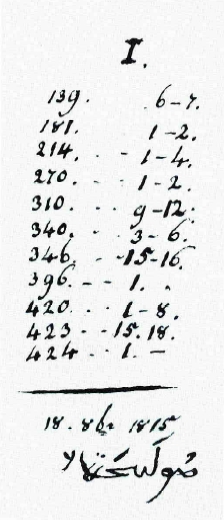 I.
139. 6-7.
181. 1-2.
214. - - 1-4.
270. - - 1-2.
310. - - 9-12.
340. - 3-6.
346. - - 15-16.
396. - - 1.
420. - - 1-8.
423 - - 15.18.
424 - - 1. -
18. 1815